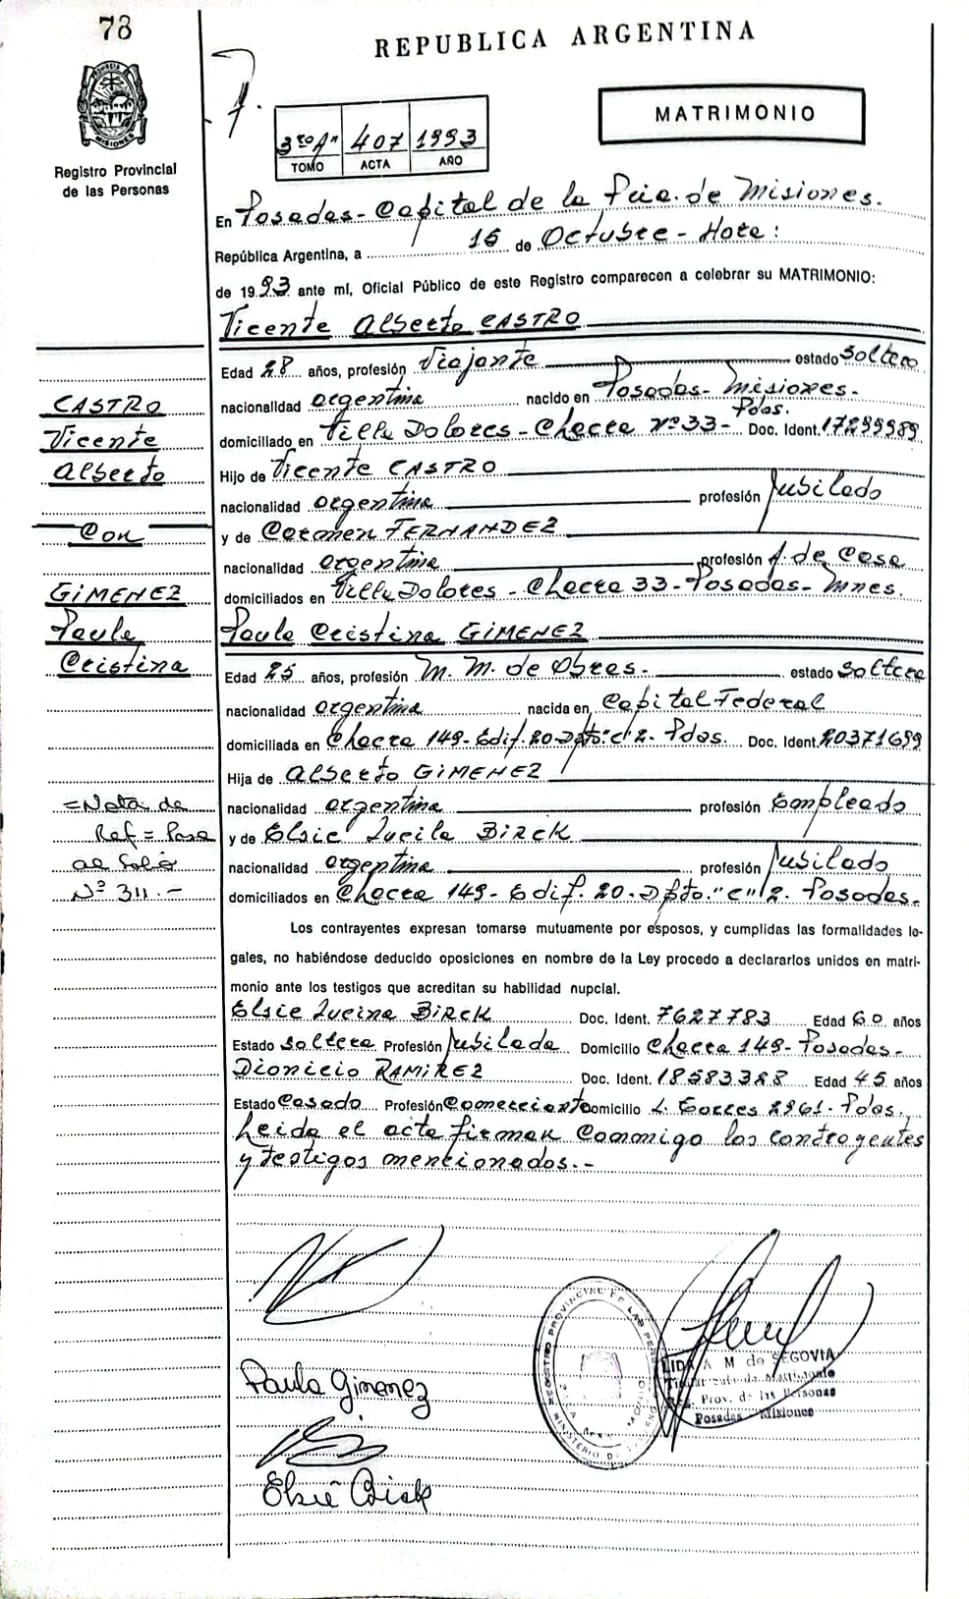 78
REPUBLICA ARGENTINA
MATRIMONIO
3ro A" 407 1993
TOMO ACTA AÑO
Registro Provincial
de las Personas
En Posadas - Capital de la Pcia. de Misiones.
República Argentina, a 15 de Octubre - Hora:
de 1993 ante mí, Oficial Público de este Registro comparecen a celebrar su MATRIMONIO:
Vicente Alberto CASTRO
Edad 28 años, profesión Viajante estado Soltero
nacionalidad argentina nacido en Posadas - Misiones.
domiciliado en Villa Dolores - Chacra Nº 33 - Pdas. Doc. Ident. 17299989
Hijo de Vicente CASTRO
nacionalidad argentina profesión Jubilado
y de Carmen FERNANDEZ
nacionalidad argentina profesión A. de Casa
domiciliados en Villa Dolores - Chacra 33 - Posadas - Mnes.
Paula Cristina GIMENEZ
Edad 25 años, profesión M. M. de Obras. estado Soltera
nacionalidad argentina nacida en Capital Federal
domiciliada en Chacra 149 - Edif. 20 - Dpto. "C" 2. Pdas. Doc. Ident. 20371699
Hija de Alberto GIMENEZ
nacionalidad argentina profesión Empleado
y de Elsie Lucila BIRCK
nacionalidad argentina profesión Jubilado
domiciliados en Chacra 149 - Edif. 20 - Dpto. "C" 2. Posadas.
Los contrayentes expresan tomarse mutuamente por esposos, y cumplidas las formalidades le-
gales, no habiéndose deducido oposiciones en nombre de la Ley procedo a declararlos unidos en matri-
monio ante los testigos que acreditan su habilidad nupcial.
Elsie Lucina BIRCK Doc. Ident. 7627783 Edad 60 años
Estado Soltera Profesión Jubilada Domicilio Chacra 149 - Posadas -
Dionicio RAMIREZ Doc. Ident. 18583388 Edad 45 años
Estado Casado Profesión Comerciante Domicilio L. Torres 2961. Pdas.
Leida el acta firman conmigo los contrayentes
y testigos mencionados.-
CASTRO
Vicente
Alberto
Con
GIMENEZ
Paula
Cristina
=Nota de
Ref= Pasa
al folio
Nº 311.-
Paula Gimenez
Elsie Birck
REGISTRO PROVINCIAL DE LAS PERSONAS
MINISTERIO DE GOBIERNO
LIDIA M de SEGOVIA
Reg. Prov. de las Personas
Posadas - Misiones